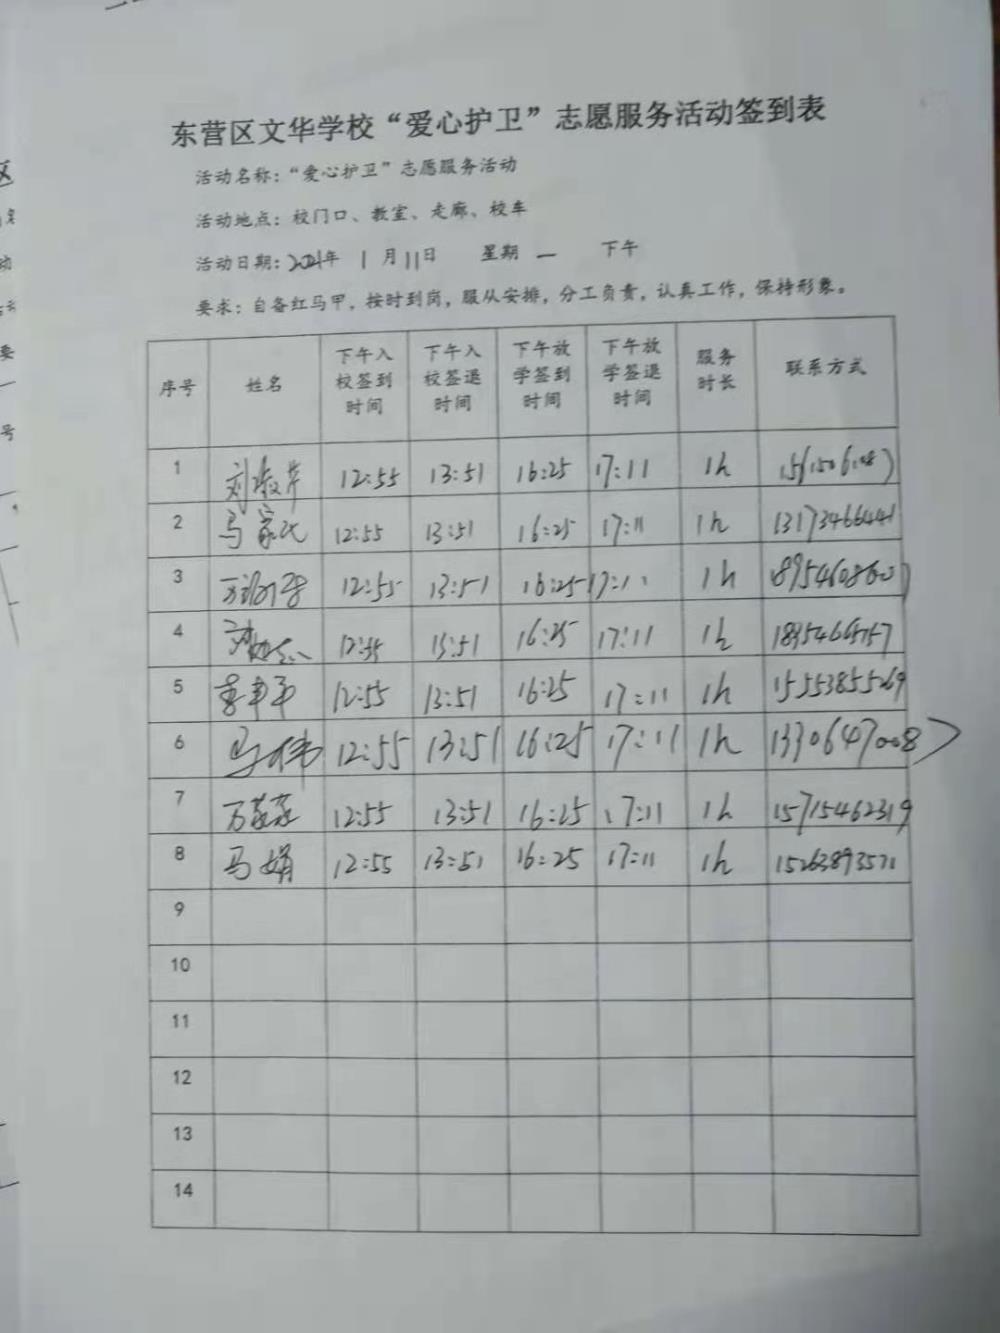 东营区文华学校“爱心护卫”志愿服务活动签到表
活动名称：“爱心护卫”志愿服务活动
活动地点：校门口、教室、走廊、校车
活动日期：2021年 1月11日 星期一 下午
要求：自备红马甲，按时到岗，服从安排，分工负责，认真工作，保持形象。
序号 姓名 下午入校签到时间 下午入校签退时间 下午放学签到时间 下午放学签退时间 服务时长 联系方式
1 12:55 13:51 16:25 17:11 1h
2 12:55 13:51 16:25 17:11 1h 13173466441
3 12:55 13:51 16:25 17:11 1h
4 13:51 16:25 17:11 1h
5 12:55 13:51 16:25 17:11 1h 15553855269
6 马伟 12:55 13:51 16:25 17:11 1h 13306470087
7 12:55 13:51 16:25 17:11 1h 15715462319
8 马娟 12:55 13:51 16:25 17:11 1h 15263893571
9
10
11
12
13
14